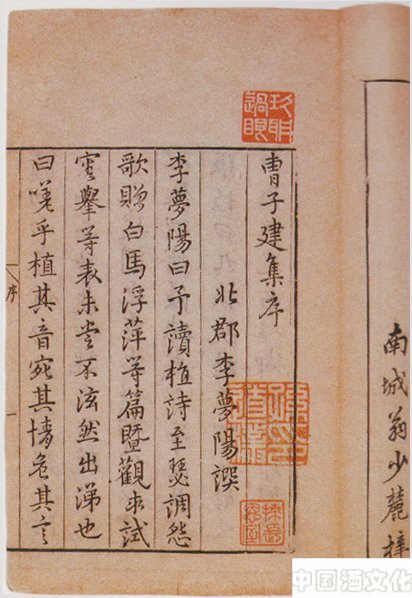 南城翁少麓梓
曹子建集序
北郡李夢陽譔
李夢陽曰予讀植詩至瑟調怨
歌贈白馬浮萍等篇暨觀求試
審舉等表未嘗不泫然出涕也
曰嗟乎植其音宛其情危其言
序
一
玖聃過眼
中国酒文化